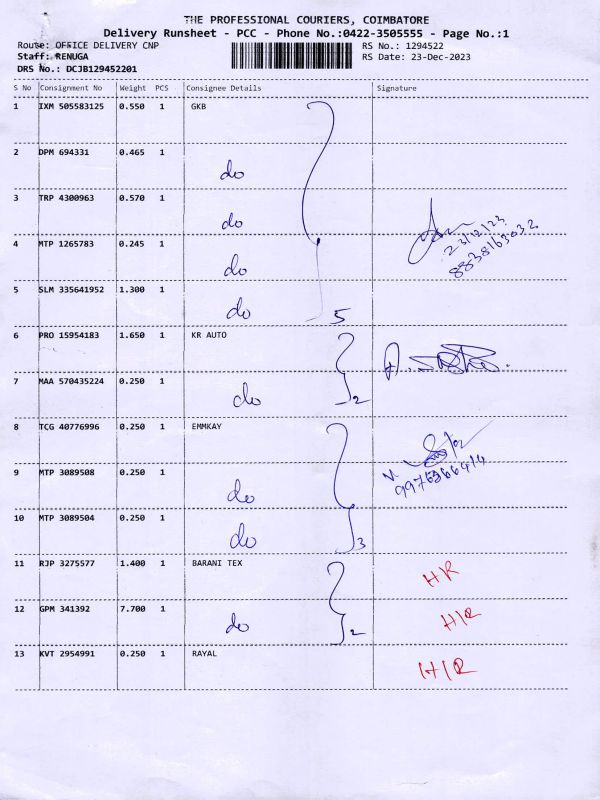 THE PROFESSIONAL COURIERS, COIMBATORE
Delivery Runsheet - PCC - Phone No.:0422-3505555 - Page No.:1
Route: OFFICE DELIVERY CNP RS No.: 1294522
Staff: RENUGA RS Date: 23-Dec-2023
DRS No.: DCJB129452201
S No Consignment No Weight PCS Consignee Details Signature
1 IXM 505583125 0.550 1 GKB
2 DPM 694331 0.465 1 do
3 TRP 4300963 0.570 1 do
23/12/23
4 MTP 1265783 0.245 1 do
8838163032
5 SLM 335641952 1.300 1 do 5
6 PRO 15954183 1.650 1 KR AUTO
7 MAA 570435224 0.250 1 do 2
8 TCG 40776996 0.250 1 EMMKAY
9 MTP 3089508 0.250 1 do
10 MTP 3089504 0.250 1 do 3
11 RJP 3275577 1.400 1 BARANI TEX H/R
12 GPM 341392 7.700 1 do 2 H/R
13 KVT 2954991 0.250 1 RAYAL H/R